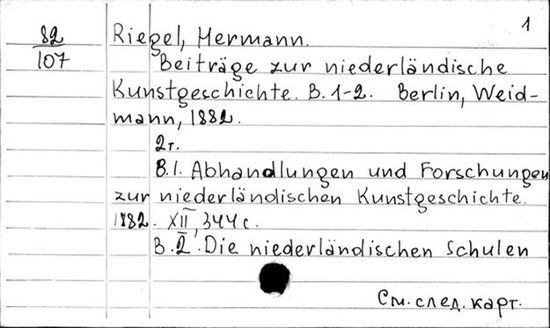 1
82
107
Riegel, Hermann.
Beiträge zur niederländische
Kunstgeschichte. B. 1-2. Berlin, Weid-
mann, 1882.
2 т.
B. 1. Abhandlungen und Forschungen
zur niederländischen Kunstgeschichte.
1882. XII, 344 с.
B. 2. Die niederländischen Schulen
См. след. карт.